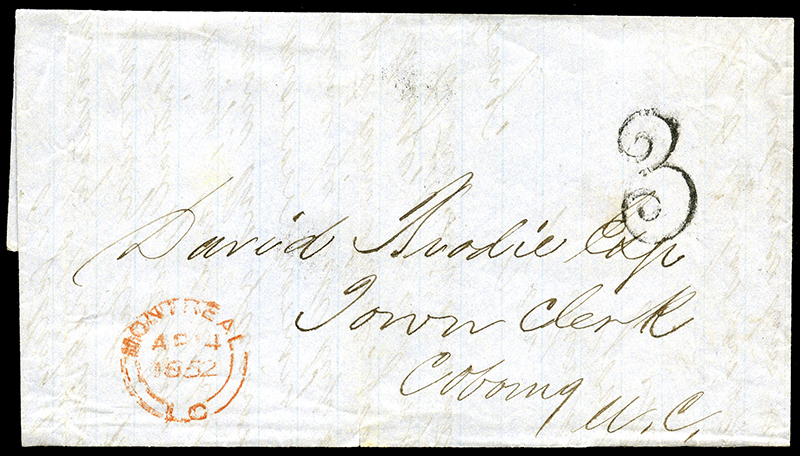 3
David Brodie Esq
Town Clerk
Cobourg
W.C.
MONTREAL
AP 4
1852
L.C